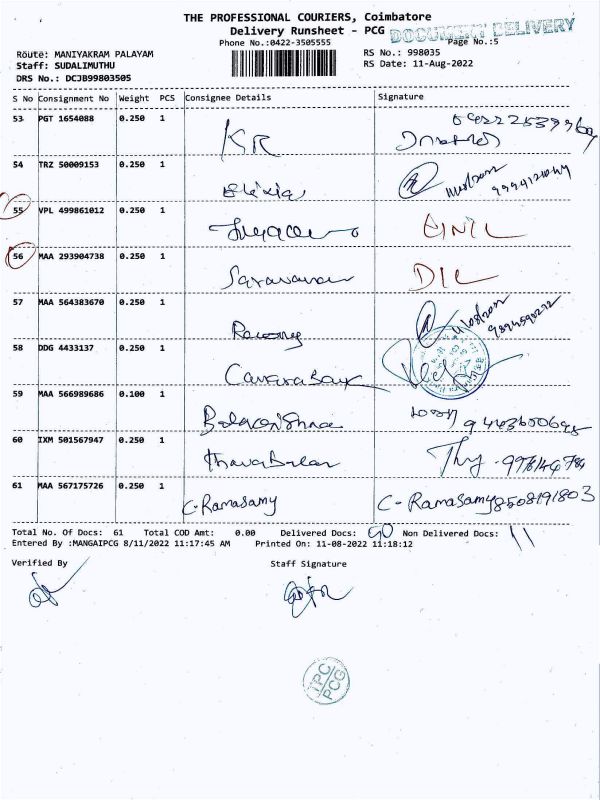 THE PROFESSIONAL COURIERS, Coimbatore
Delivery Runsheet - PCG
DOCUMENT DELIVERY
Phone No.:0422-3505555
Page No.:5
Route: MANIYAKRAM PALAYAM
RS No.: 998035
Staff: SUDALIMUTHU
RS Date: 11-Aug-2022
DRS No.: DCJB99803505
S No Consignment No Weight PCS Consignee Details Signature
53 PGT 1654088 0.250 1 KR
54 TRZ 50009153 0.250 1
55 VPL 499861012 0.250 1
56 MAA 293904738 0.250 1 Saravanan DIL
57 MAA 564383670 0.250 1
58 DDG 4433137 0.250 1 Canara Bank
59 MAA 566989686 0.100 1 Balakrishna
60 IXM 501567947 0.250 1
61 MAA 567175726 0.250 1 C-Ramasamy C-Ramasamy 8508191803
Total No. Of Docs: 61 Total COD Amt: 0.00 Delivered Docs: 50 Non Delivered Docs: 11
Entered By :MANGAIPCG 8/11/2022 11:17:45 AM Printed On: 11-08-2022 11:18:12
Verified By Staff Signature
TPC
PCG